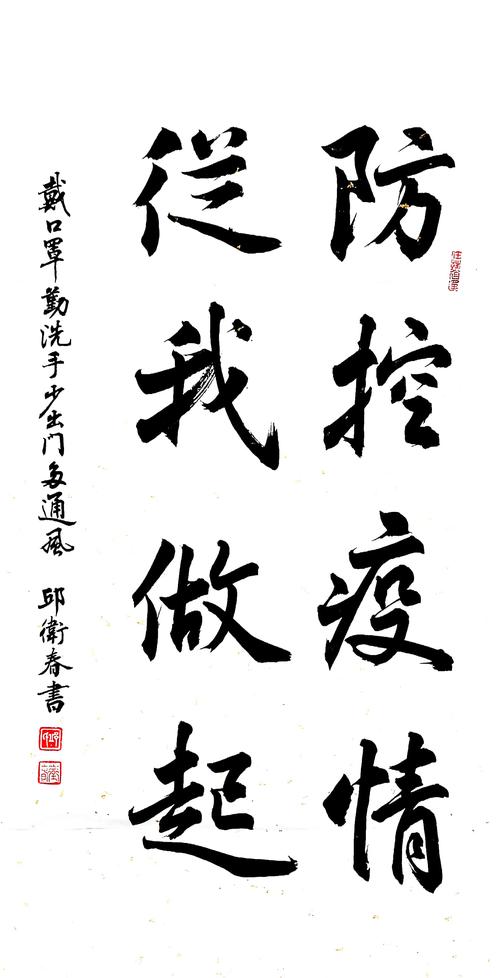 防控疫情
從我做起
戴口罩勤洗手少出门多通風 邱衛春書